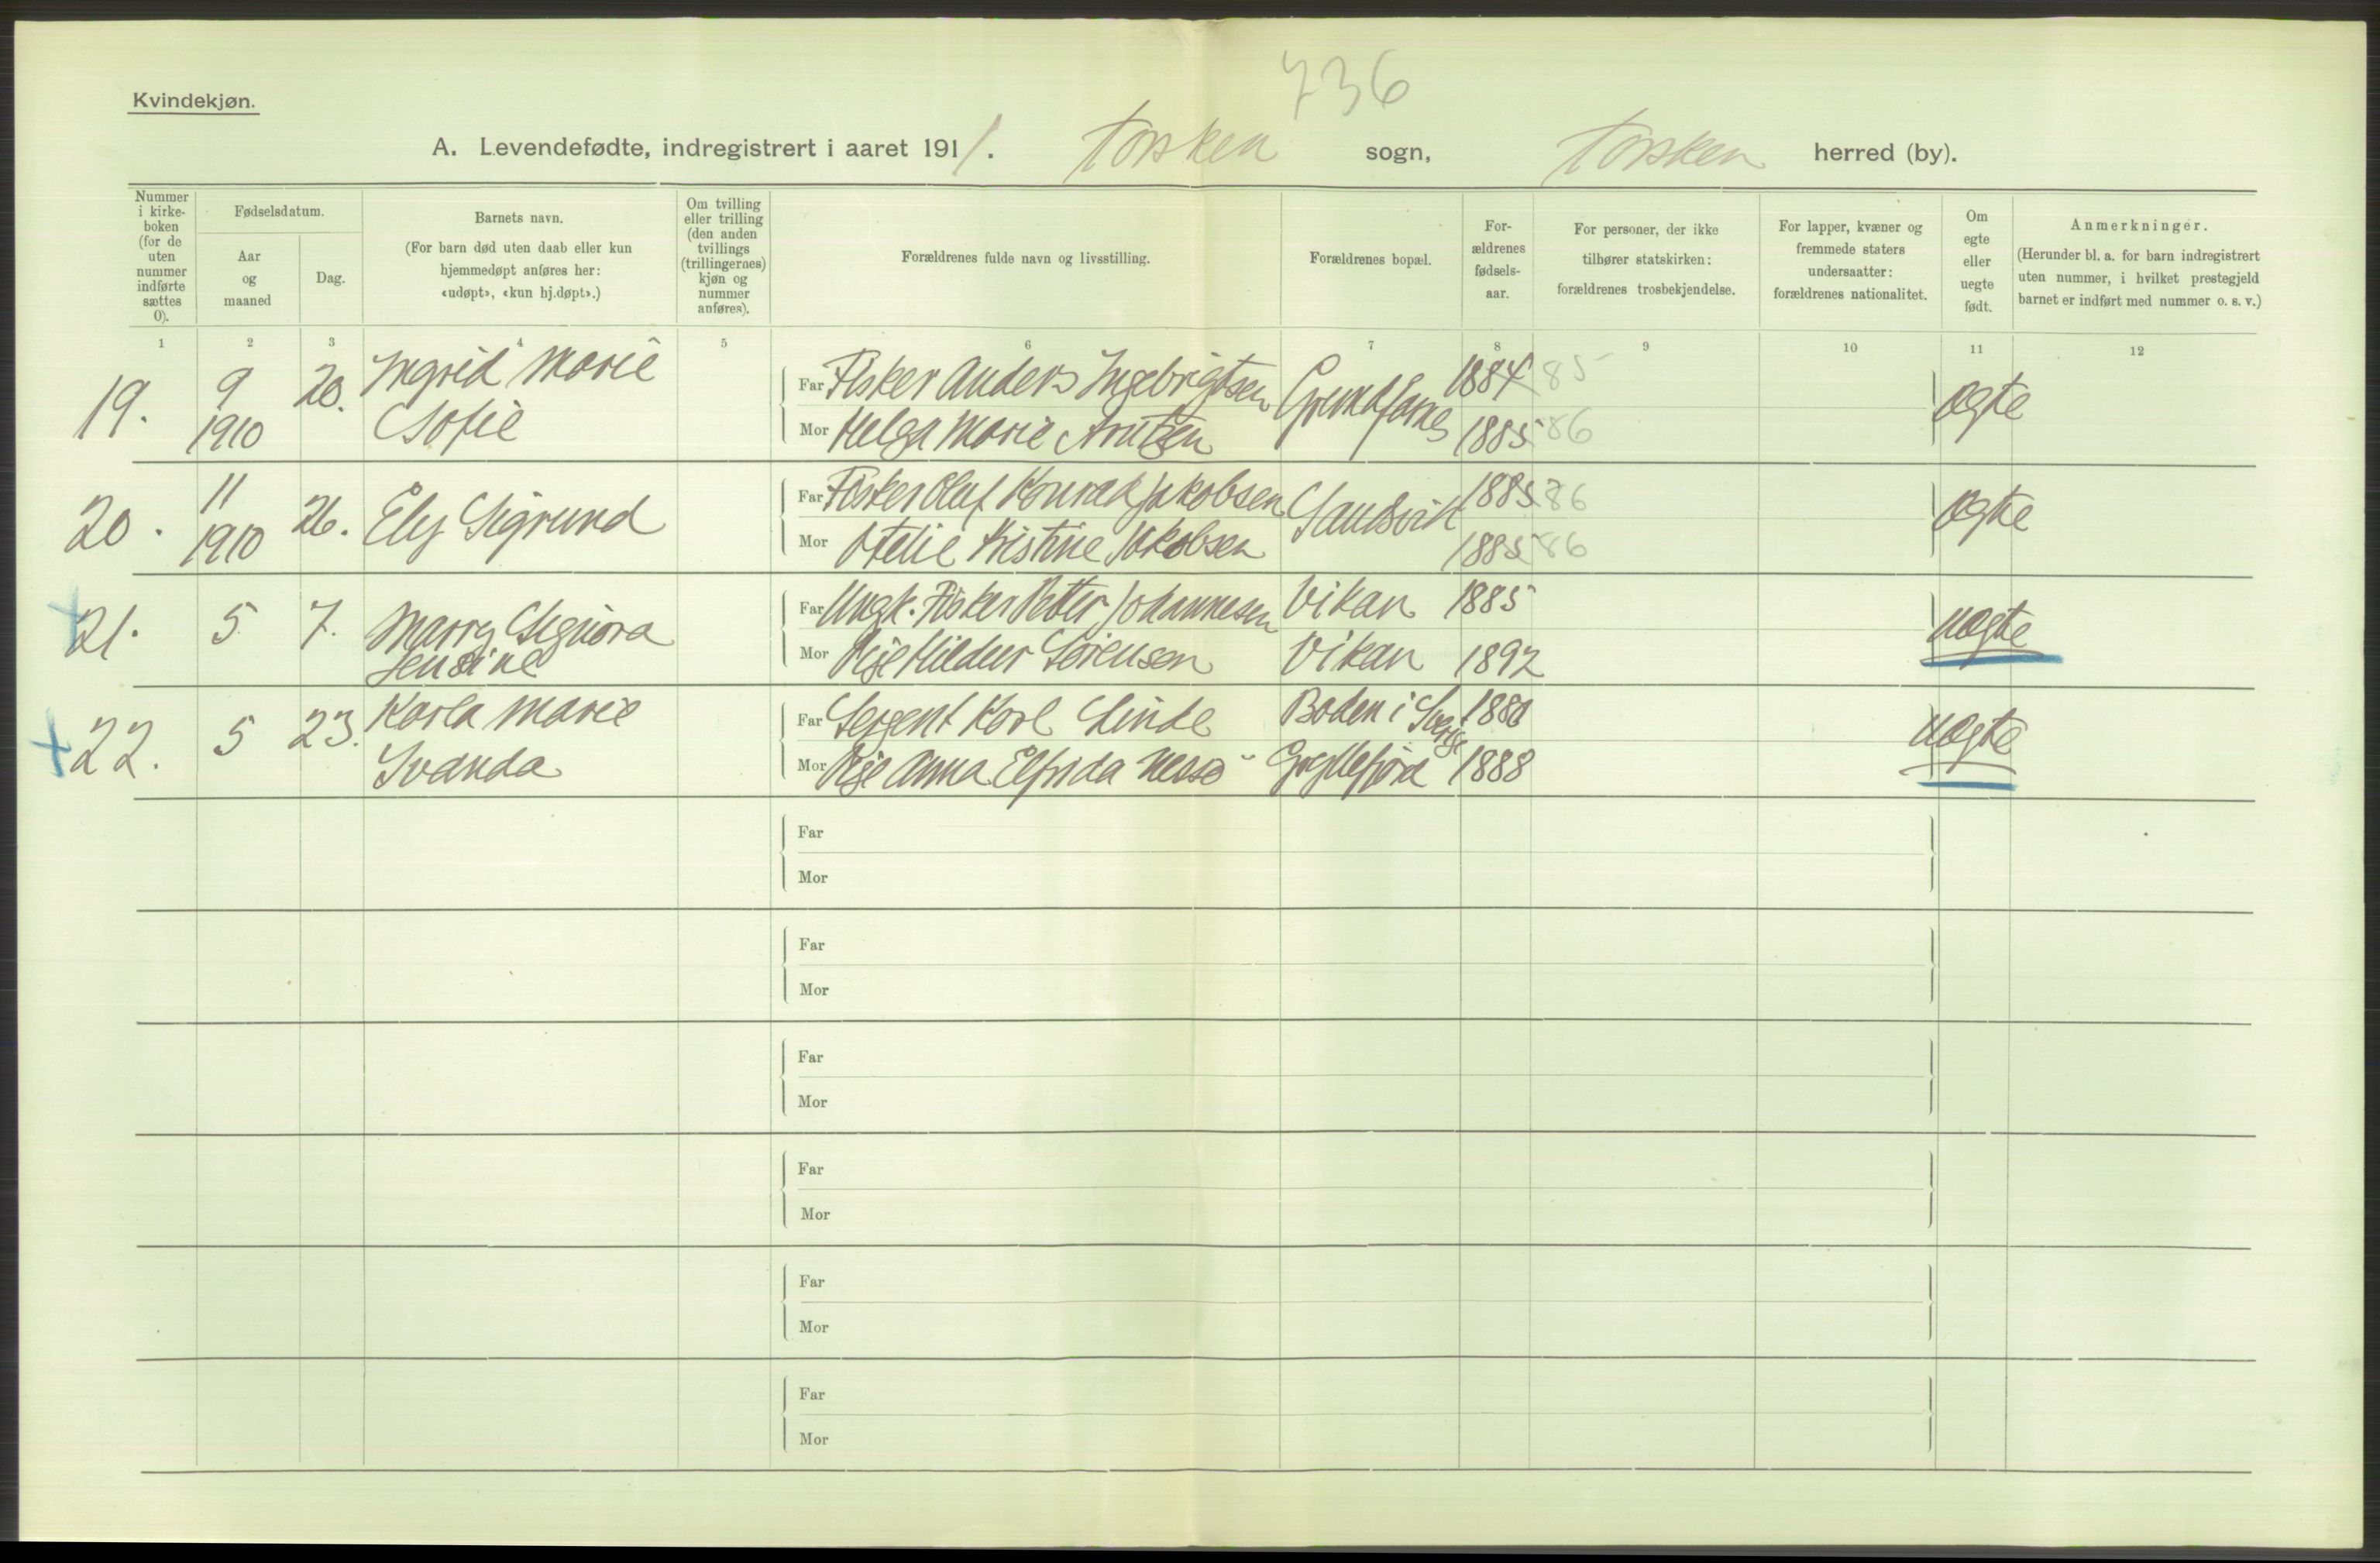 736
Kvindekjøn.
A. Levendefødte, indregistrert i aaret 1911. Torsken sogn, Torsken herred (by).
Nummer i kirke-boken (for de uten nummer indførte sættes 0).
Fødselsdatum.
Aar og maaned
Dag.
Barnets navn.
(For barn død uten daab eller kun hjemmedøpt anføres her: «udøpt», «kun hj.døpt».)
Om tvilling eller trilling (den anden tvillings (trillingernes) kjøn og nummer anføres).
Forældrenes fulde navn og livsstilling.
Forældrenes bopæl.
For-ældrenes fødsels-aar.
For personer, der ikke tilhører statskirken: forældrenes trosbekjendelse.
For lapper, kvæner og fremmede staters undersaatter: forældrenes nationalitet.
Om egte eller uegte født.
Anmerkninger.
(Herunder bl. a. for barn indregistrert uten nummer, i hvilket prestegjeld barnet er indført med nummer o. s. v.)
1 2 3 4 5 6 7 8 9 10 11 12
19. 9 1910 20. Ingrid Marie Sofie
Far Fisker Anders Ingebrigtsen Grundfarnes 1884 85 ægte
Mor Helga Marie Arntzen 1885 86
20. 11 1910 26. Ely Sigrund
Far Fisker Oluf Konrad Jakobsen Sandsvik 1885 86 ægte
Mor Ofelie Kristine Jakobsen 1885 86
21. 5 7. Marry Signora Jensine
Far Ungk. Fisker Petter Johannesen Vikan 1885 uægte
Mor Pige Hildur Sørensen Vikan 1892
22. 5 23. Karla Marie Ivanda
Far Sergent Karl Linde Boden i Sverige 1880 uægte
Mor Pige Anna Elfrida Nesse Gryllefjord 1888
Far
Mor
Far
Mor
Far
Mor
Far
Mor
Far
Mor
Far
Mor